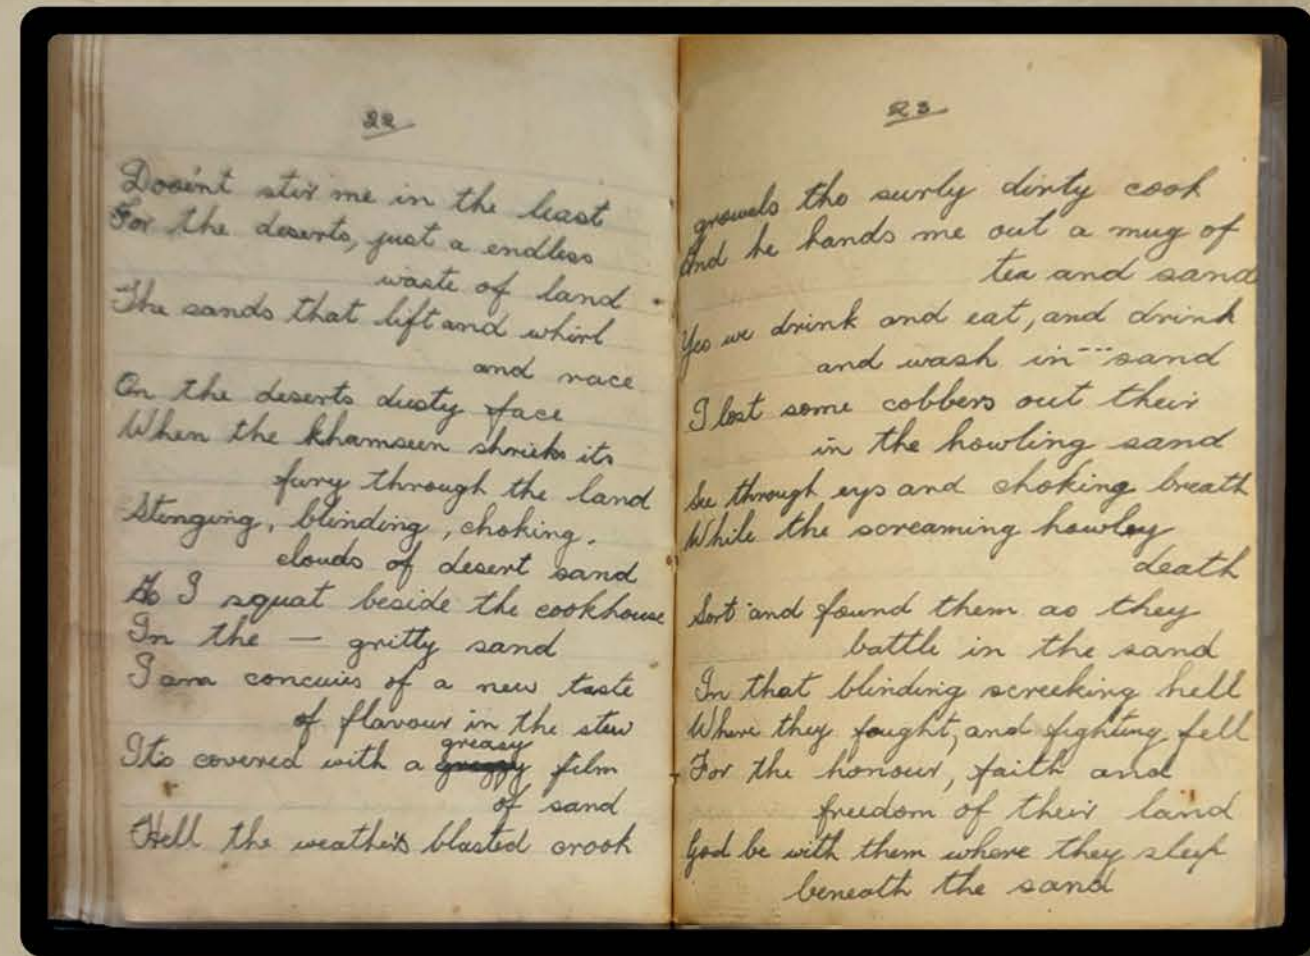 22
Dosënt stir me in the least
For the deserts, just a endless
waste of land
The sands that lift and whirl
and race
On the deserts dusty face
When the khamseen shrieks its
fury through the land
Stenging, blinding, choking.
clouds of desert sand
As I squat beside the cookhouse
In the — gritty sand
I am concuies of a new taste
of flavour in the stew
Its covered with a greasy film
of sand
Hell the weather's blasted crook
23
growels tho surly dirty cook
And he hands me out a mug of
tea and sand
Yes we drink and eat, and drink
and wash in --- sand
I lost some cobbers out their
in the howling sand
See through eys and choking breath
While the screaming howley
death
Sort and found them as they
battle in the sand
In that blinding screeking hell
Where they fought, and fighting fell
For the honour, faith and
freedom of their land
God be with them where they sleep
beneath the sand